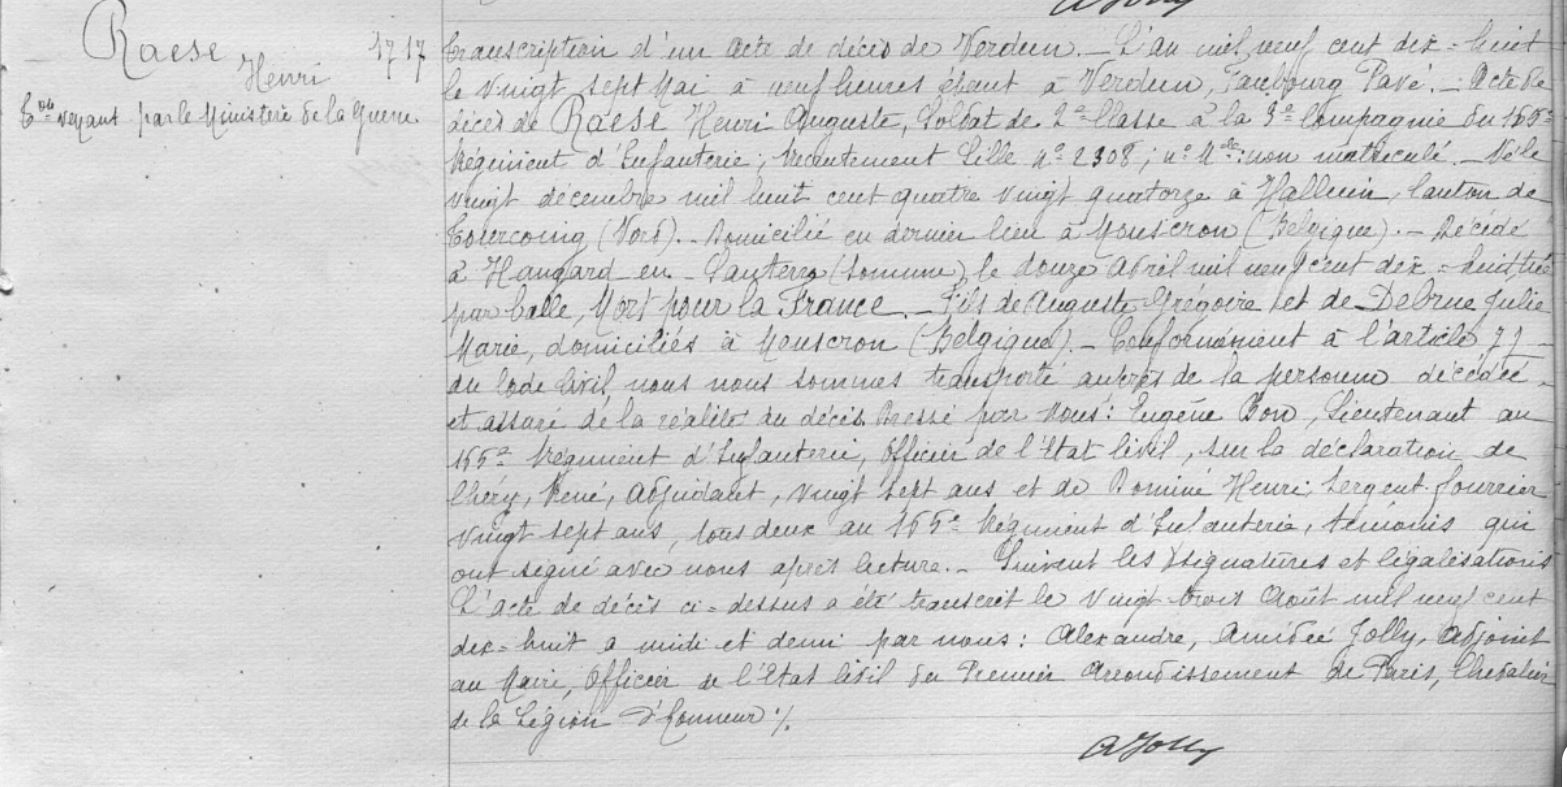 Raese
Henri
1717
Con envoyant par le Ministère de la Guerre.
Transcription d'un Acte de décès de Verdun. _ L'an mil neuf cent dix = huit
le vingt sept Mai à neuf heures étant à Verdun, Faubourg Pavé. _ Acte de
décès de Raese Henri Auguste, Soldat de 2e Classe à la 3e Compagnie du 165e
Régiment d'Infanterie ; recrutement Lille no 2308 ; no Mle : non matriculé. _ Né le
vingt décembre mil huit cent quatre vingt quatorze à Halluin, Canton de
Tourcoing (Nord). _ Domicilié en dernier lieu à Mouscron (Belgique). _ Décédé
à Hangard _ en _ Santerre (Somme) le douze Avril mil neuf cent dix = huit tué
par balle, Mort pour la France. _ Fils de Auguste Grégoire et de Debrue Julie
Marie, domiciliés à Mouscron (Belgique). _ Conformément à l'article 77 _
du Code Civil, nous nous sommes transporté auprès de la personne décédée
et assuré de la réalité du décès. Dressé par Nous : Eugène Bon, Lieutenant au
165e Régiment d'Infanterie, Officier de l'Etat Civil, sur la déclaration de
Chéry, René, Adjudant, vingt sept ans et de Dominé Henri, Sergent fourrier
vingt sept ans, tous deux au 165e Régiment d'Infanterie, témoins qui
ont signé avec nous après lecture. _ Suivent les signatures et légalisations
L'acte de décès ci = dessus a été transcrit le vingt trois Août mil neuf cent
dix = huit à midi et demi par nous : Alexandre, Amédée Jolly, Adjoint
au Maire, Officier de l'Etat Civil du Premier Arrondissement de Paris, Chevalier
de la Légion d'honneur ./.
AJolly